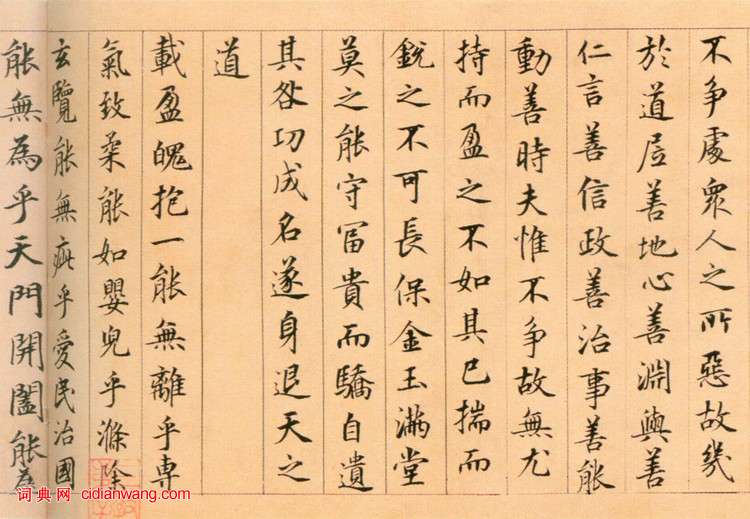 不争處衆人之所惡故幾
於道居善地心善淵與善
仁言善信政善治事善能
動善時夫惟不争故無尤
持而盈之不如其已揣而
銳之不可長保金玉滿堂
莫之能守冨貴而驕自遺
其咎功成名遂身退天之
道
載盈魄抱一能無離乎専
氣致柔能如嬰兒乎滌除
玄覽能無疵乎愛民治國
能無為乎天門開闔能為
词典网 cidianwang.com